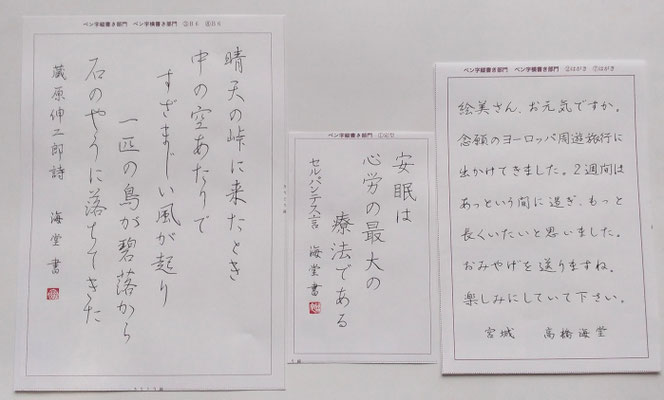 ペン字縦書き部門 ペン字横書き部門
晴天の峠に来たとき
中の空あたりで
すざまじい風が起り
一匹の鳥が碧落から
石のやうに落ちてきた
蔵原伸二郎詩 海堂書
ペン字縦書き部門
安眠は
心労の最大の
療法である
セルバンテス言 海堂書
ペン字縦書き部門 ペン字横書き部門 ②はがき ⑦はがき
絵美さん、お元気ですか。
念願のヨーロッパ周遊旅行に
出かけてきました。2週間は
あっという間に過ぎ、もっと
長くいたいと思いました。
おみやげを送りますね。
楽しみにしていて下さい。
宮城 高橋海堂